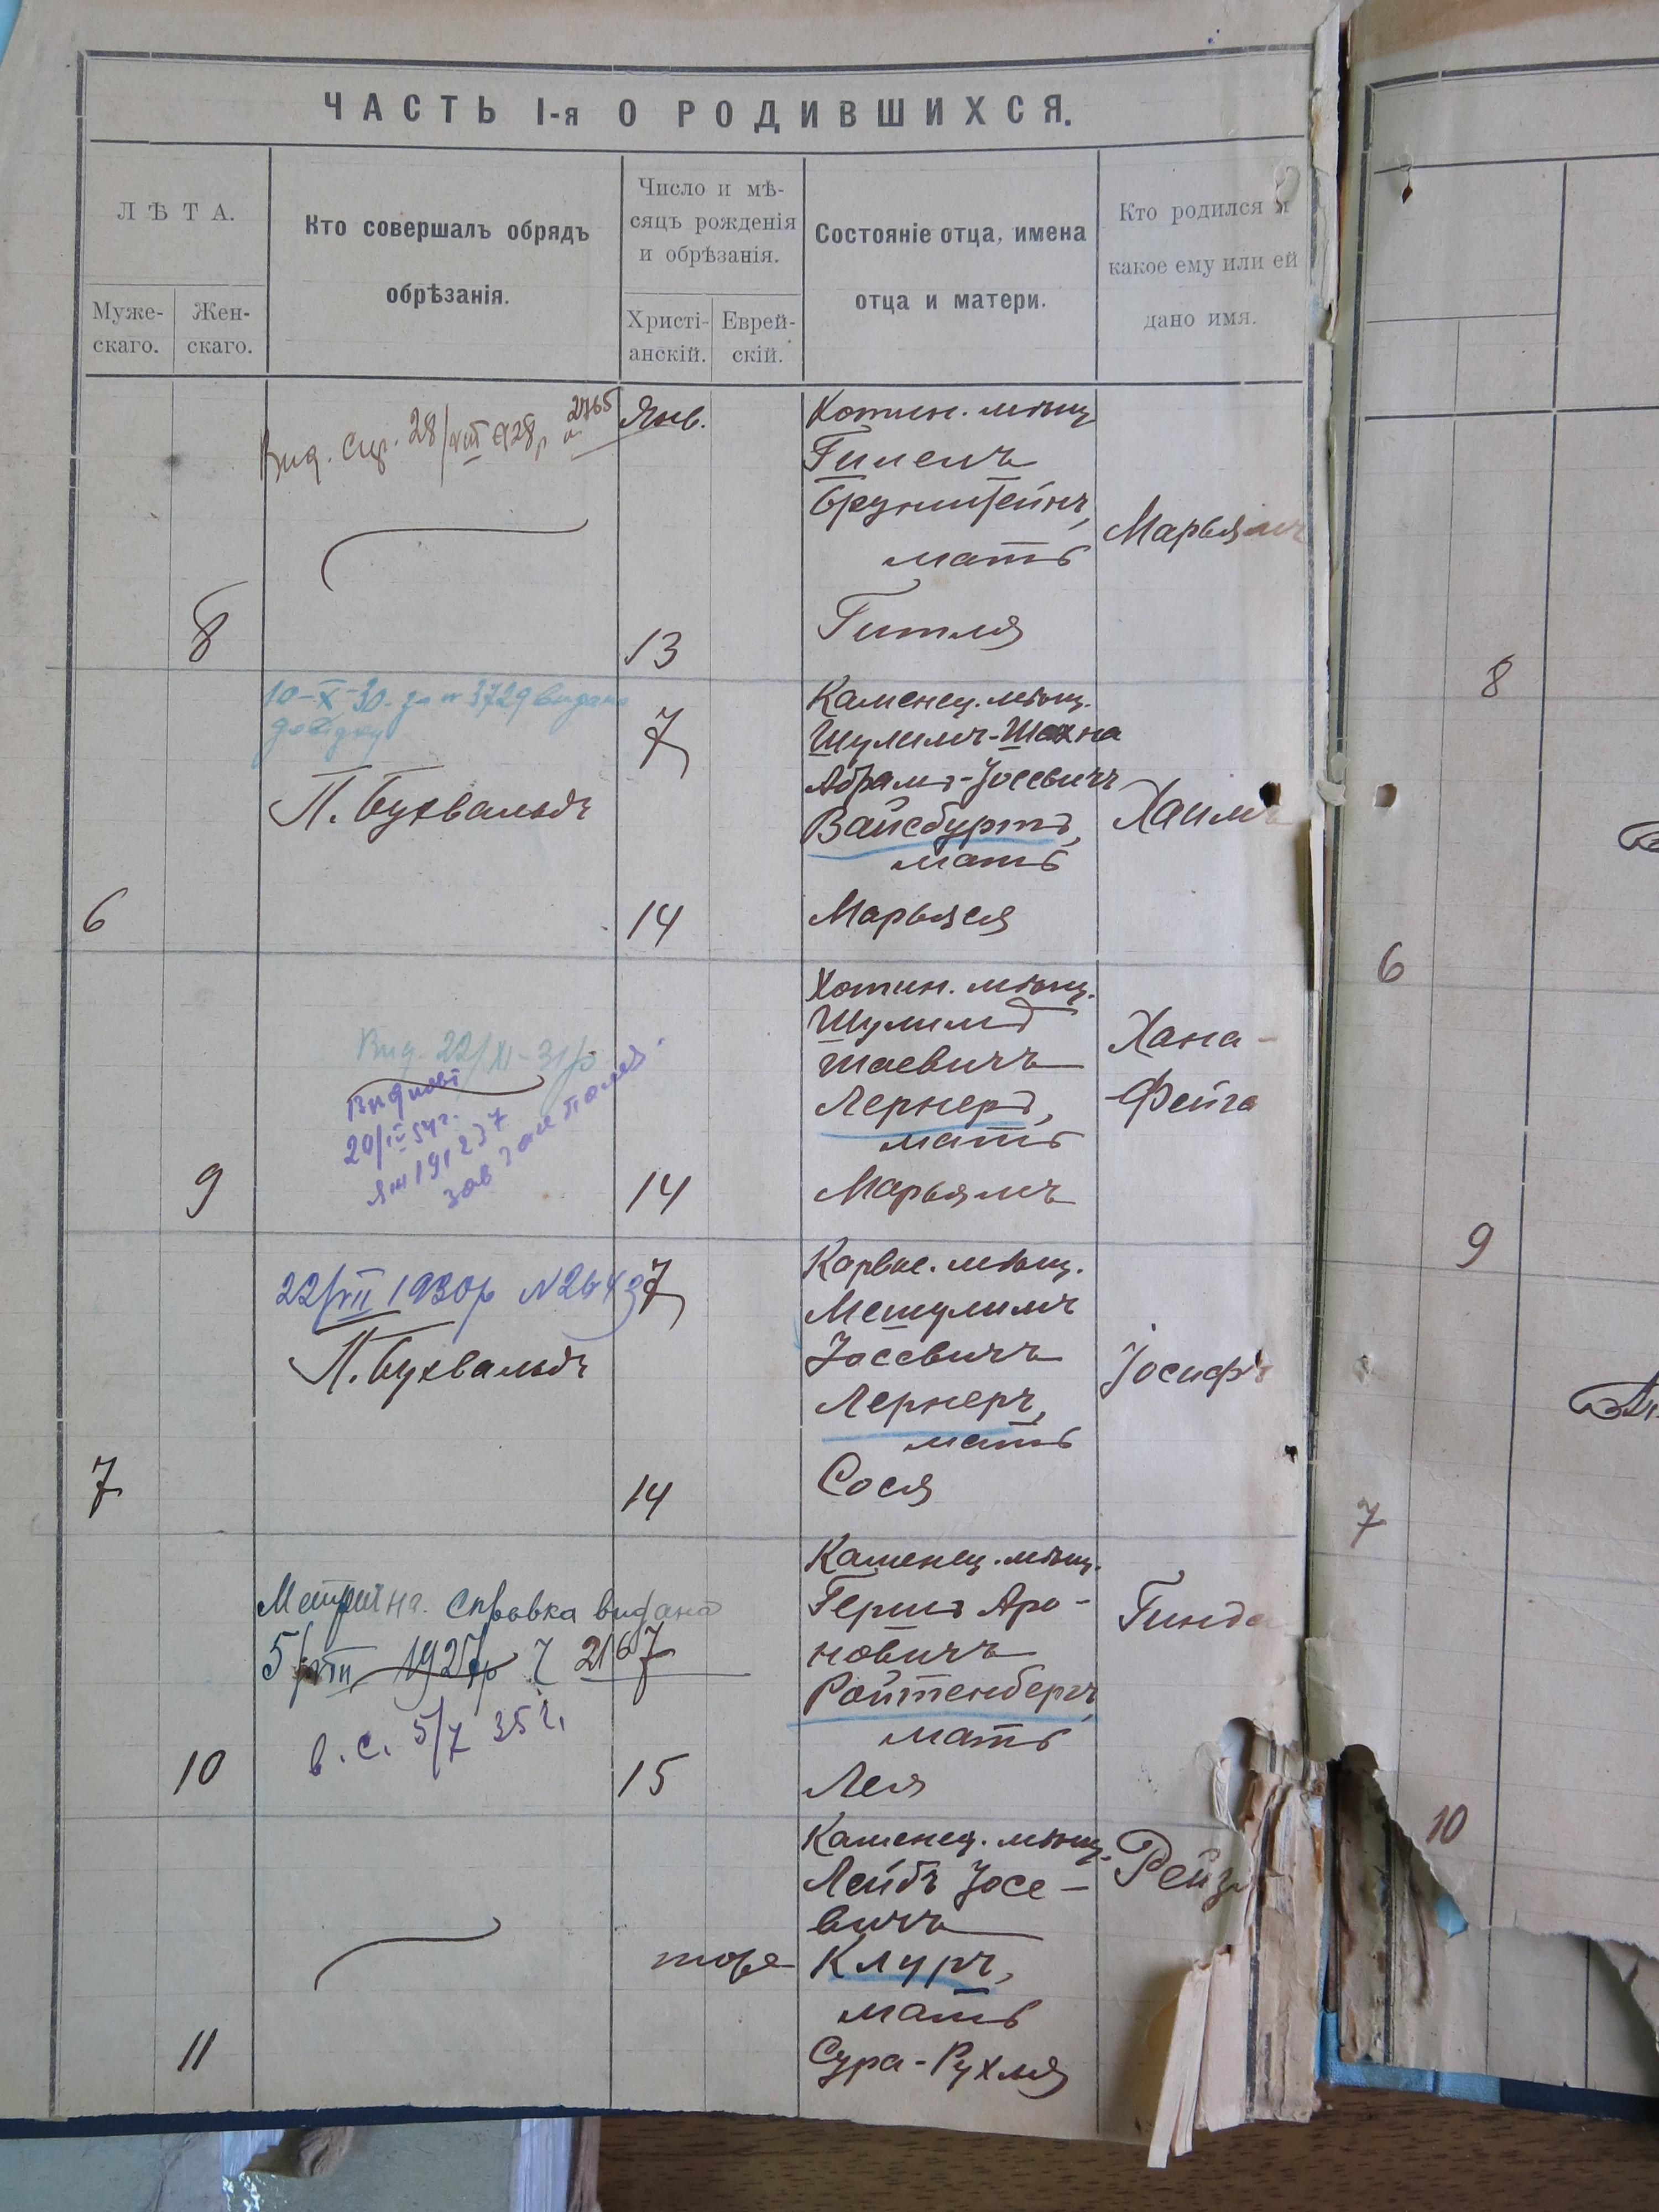 ЧАСТЬ I-я О РОДИВШИХСЯ.
ЛѢТА.
Муже-
скаго.
Жен-
скаго.
Кто совершалъ обрядъ
обрѣзанія.
Число и мѣ-
сяцъ рожденія
и обрѣзанія.
Христі-
анскій.
Еврей-
скій.
Состояніе отца, имена
отца и матери.
Кто родился и
какое ему или ей
дано имя.
8
28/VIII 928р 2765
Янв.
13
Хотин. мѣщ.
Гимель
Брунштейнъ,
мать
Гитля
Марьямъ
8
6
10-X-30. за № 3729 видана
довідку
П. Бухвальдъ
7
14
Каменец. мѣщ.
Шулимъ-Шахна
Абрамъ-Іосевичъ
Вайсбуртъ,
мать
Марьяся
Хаимъ
6
9
Вид. 22/XI-31р.
20/IV 54г.
14
Хотин. мѣщ.
Шулимъ
Шаевичъ
Лернеръ,
мать
Марьямъ
Хана-
Фейга
9
7
22/VII 1930р N 2643
П. Бухвальдъ
7
14
Карвас. мѣщ.
Мешулимъ
Іосевичъ
Лернеръ,
мать
Сося
Іосифъ
7
10
Метрична Справка видана
5/VIII 1927р 2167
в. с. 5/7 35 г.
15
Каменец. мѣщ.
Гершъ Аро-
новичъ
Ройтенбергъ,
мать
Лея
Гинда
10
11
тоже
Каменец. мѣщ.
Лейбъ Іосе-
вичъ
Клуръ,
мать
Сура-Рухля
Рейз